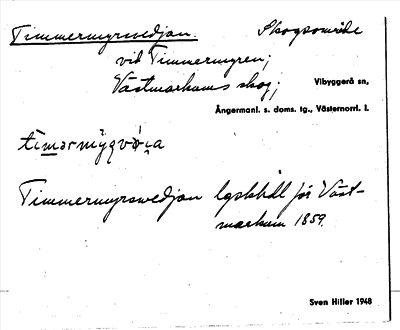 Timmermyrsvedjan. Skogsområde
vid Timmermyren;
Västmarkums skog; Vibyggerå sn,
Ångermanl. s. doms. tg., Västernorrl. l.
Timmermyrswedjan lgskhdl för Väst-
markum 1859.
Sven Hiller 1948